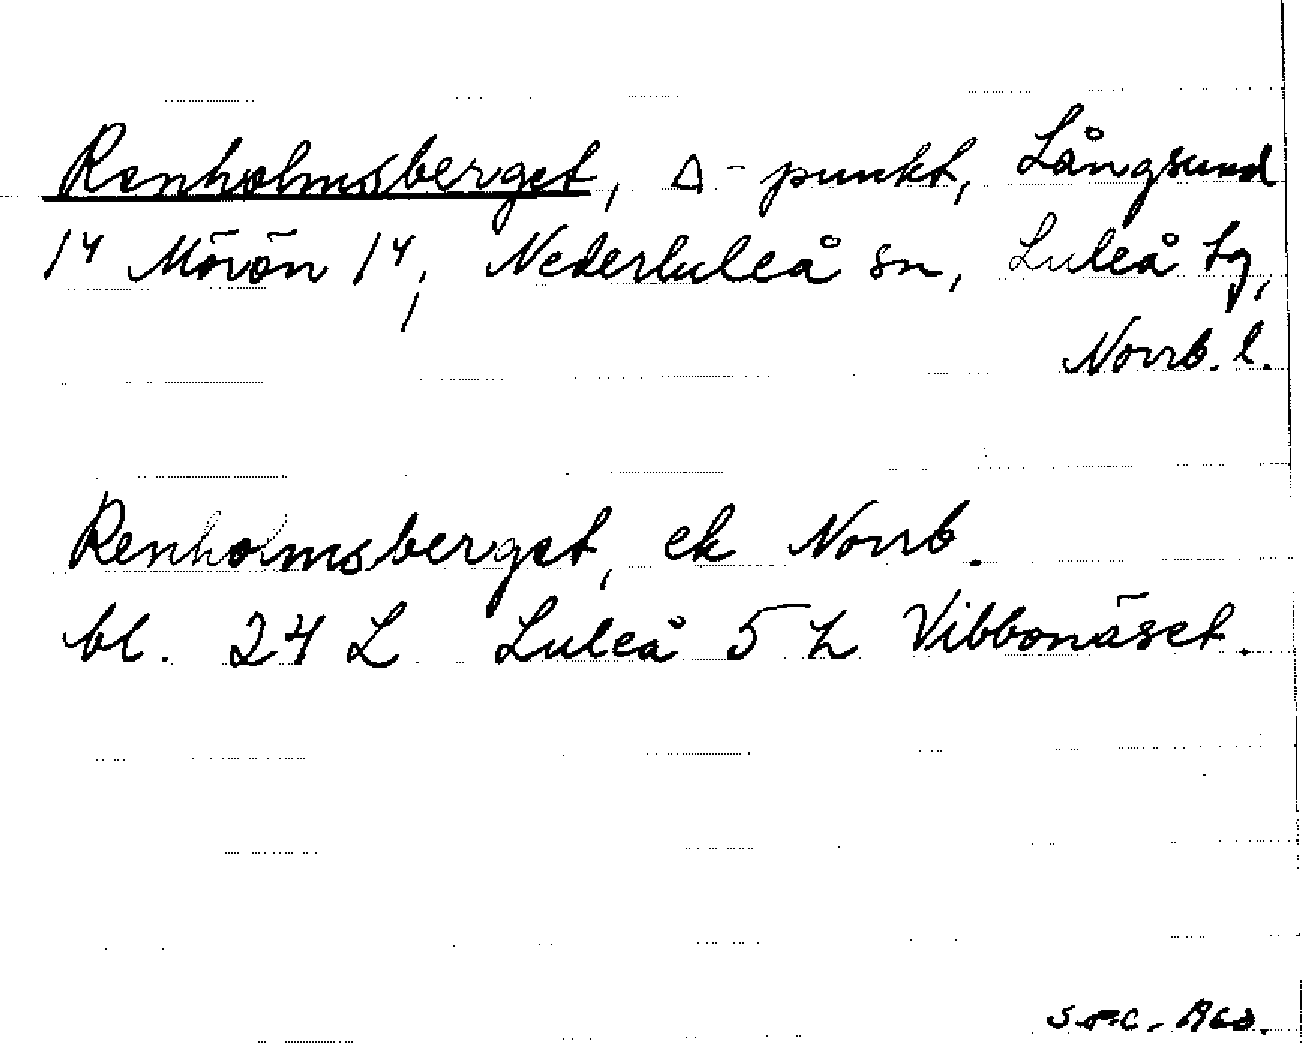 Renholmsberget, △-punkt, Långsund
1⁴ Mörön 1⁴, Nederluleå sn, Luleå tg,
Norrb. l.
Renholmsberget, ek Norrb.
bl. 24 L Luleå 5 h Vibbonäset.